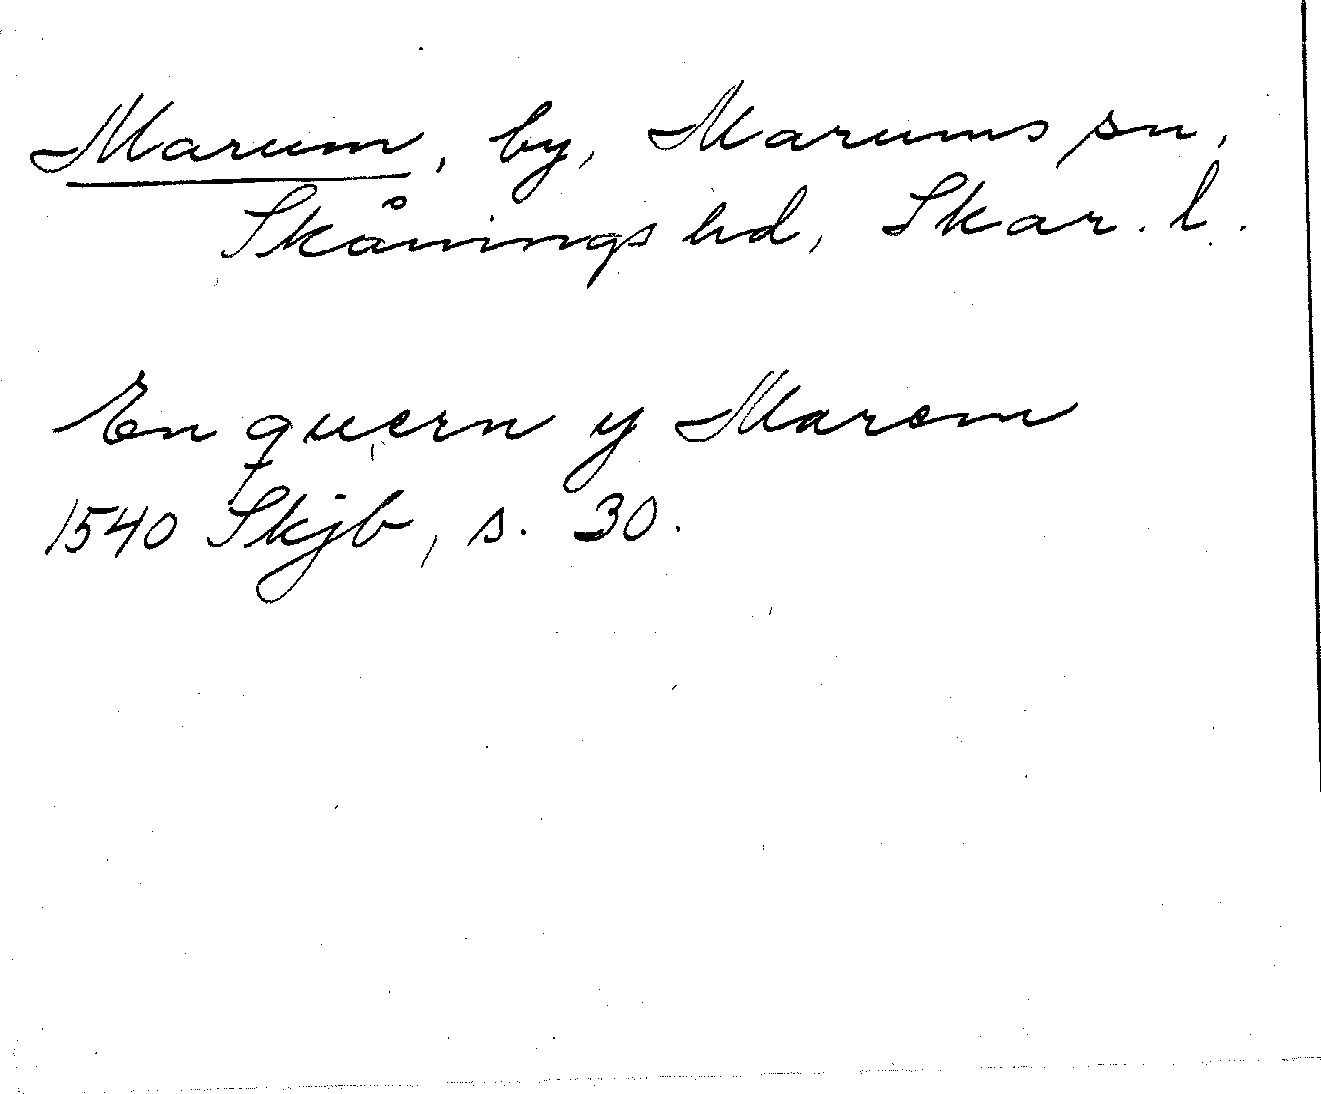 Marum, by, Marums sn,
Skånings hd, Skar. l.
En quern y Marem
1540 Skjb, s. 30.